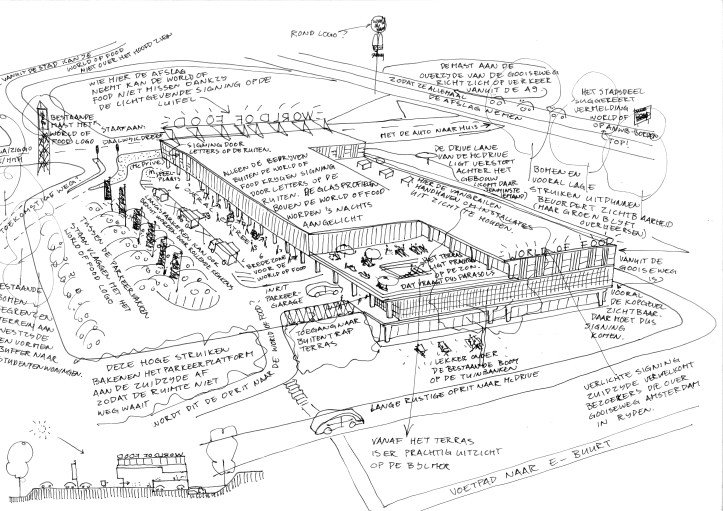 ROND LOGO?
VANUIT DE STAD KAN JE
WORLD OF FOOD
NIET OVER HET HOOFD ZIEN
WIE HIER DE AFSLAG
NEEMT KAN DE WORLD OF
FOOD NIET MISSEN DANKZIJ
DE LICHTGEVENDE SIGNING OP DE
LUIFEL
DE MAST AAN DE
OVERZIJDE VAN DE GOOISEWEG
RICHT ZICH OP VERKEER
VANUIT DE A9.
ZODAT ZE ALLEMAAL
DE AFSLAG NEMEN
HET STADSDEEL
SUGGEREERT
VERMELDING
WORLD OF
OP ANWB-BORDEN
TOP!
BESTAANDE
MAST MET
WORLD OF
FOOD LOGO
STAAT AAN:
DAALWIJKDREEF
WORLD OF FOOD
MET DE AUTO NAAR HUIS
SIGNING DOOR
LETTERS OP DE RUITEN.
ALLEEN DE BEDRIJVEN
BUITEN DE WORLD OF
FOOD KRIJGEN SIGNING
DOOR LETTERS OP DE
RUITEN. DE GLASPROFIELEN
BOVEN DE WORLD OF FOOD
WORDEN 'S NACHTS
AANGELICHT
DE DRIVE LANE
VAN DE MCDRIVE
LIGT VERSTOPT
ACHTER HET
GEBOUW
BOMEN EN
VOORAL LAGE
STRUIKEN UITDUNNEN
BEVORDERT ZICHTBAARHEID
(MAAR GROEN BLIJFT
OVERHEERSEN)
HANDHAVEN OM INSTALLATIES
UIT ZICHT TE HOUDEN.
MCDRIVE
TOEKOMSTIGE WEG
TUSSEN DE PARKEERVAKKEN
STAAN VLAGGEN MET HET
WORLD OF FOOD LOGO
BREDE ZONE
VOOR DE
WORLD OF FOOD
INRIT
PARKEER-
GARAGE
HET TERRAS
LIGT PRACHTIG
OP DE ZON.
DAT VRAAGT DUS PARASOLS
WORLD OF FOOD
VANUIT DE
GOOISEWEG
IS
VOORAL
DE KOPGEVEL
ZICHTBAAR.
DAAR MOET DUS
SIGNING
KOMEN.
TOEGANG NAAR
BUITENTRAP
TERRAS
DEZE HOGE STRUIKEN
BAKENEN HET PARKEERPLATFORM
AAN DE ZUIDZIJDE AF
ZODAT DE RUIMTE NIET
WEG WAAIT
WORDT DIT DE OPRIT NAAR DE WORLD OF FOOD
LEKKER ONDER
DE BESTAANDE BOOM
OP DE TUINBANKEN
LANGE RUSTIGE OPRIT NAAR MCDRIVE
VERLICHTE SIGNING
ZUIDZIJDE VERWELKOMT
BEZOEKERS DIE OVER
GOOISEWEG AMSTERDAM
IN RIJDEN.
VANAF HET TERRAS
IS ER PRACHTIG UITZICHT
OP DE BIJLMER
VOETPAD NAAR E-BUURT
WORLD OF FOOD
ESTAANDE
BOMEN
EGRENZEN
TERREIN AAN
EN VORMEN
BUFFER NAAR
STUDENTENWONINGEN.